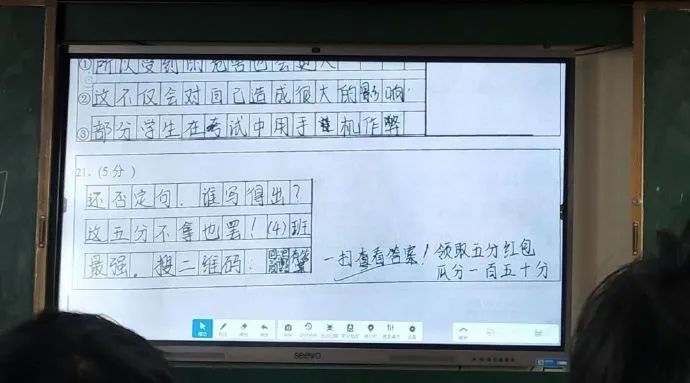 ①所以受到的危害也会更大
②这不仅会对自己造成很大的影响.
③部分学生在考试中用手机作弊
21.(5分)
还否定句.谁写得出?
这五分不拿也罢!(4)班
最强.搜二维码:
一扫查看答案!
领取五分红包
瓜分一百五十分
seewo